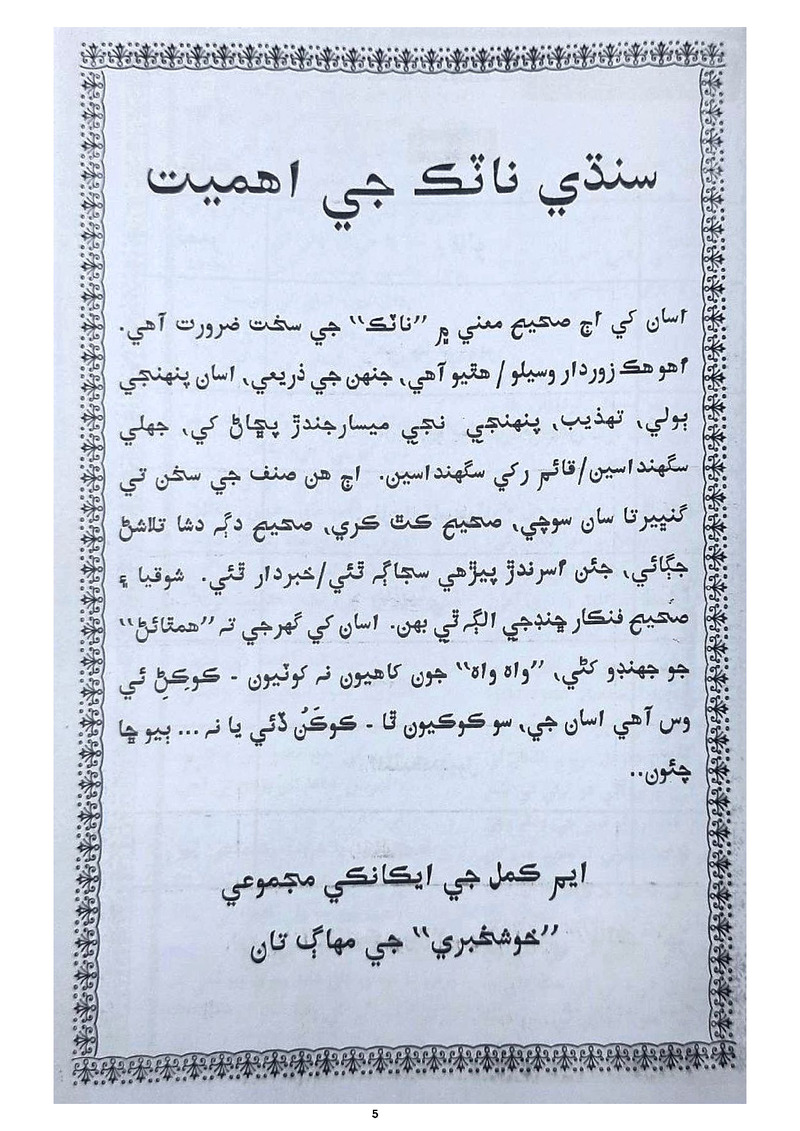 سنڌي ناٽڪ جي اهميت
اسان کي اڄ صحيح معني ۾ ”ناٽڪ“ جي سخت ضرورت آهي.
اهو هڪ زوردار وسيلو / هٿيو آهي، جنهن جي ذريعي، اسان پنهنجي
ٻولي، تهذيب، پنهنجي نجي ميسارجندڙ پڇاڻ کي، جهلي
سگهنداسين/قائم رکي سگهنداسين. اڄ هن صنف جي سخن تي
گنڀيرتا سان سوچي، صحيح ڪٿ ڪري، صحيح دڳہ دشا تلاشڻ
جڳائي، جئن اسرندڙ پيڙهي سجاڳہ ٿئي/خبردار ٿئي. شوقيا ۽
صَحيح فنڪار ڇنڊجي الڳہ ٿي پهن. اسان کي گهرجي تہ ”همٿائڻ“
جو جهنڊو کڻي، ”واهہ واهہ“ جون کاهيون نہ کوٽيون - ڪوڪِڻِ ئي
وس آهي اسان جي، سو ڪوڪيون ٿا - ڪوڪَڻُ ڏئي يا نہ ... ٻيو ڇا
چئون..
ايم ڪمل جي ايڪانڪي مجموعي
”خوشخبري“ جي مهاڳ تان
5